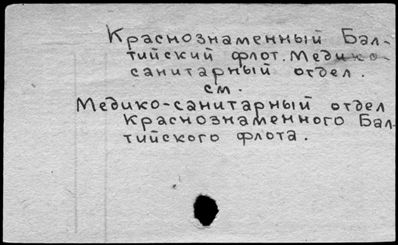 Краснознаменный Бал-
тийский флот. Медико-
санитарный отдел.
см.
Медико-санитарный отдел
Краснознаменного Бал-
тийского флота.